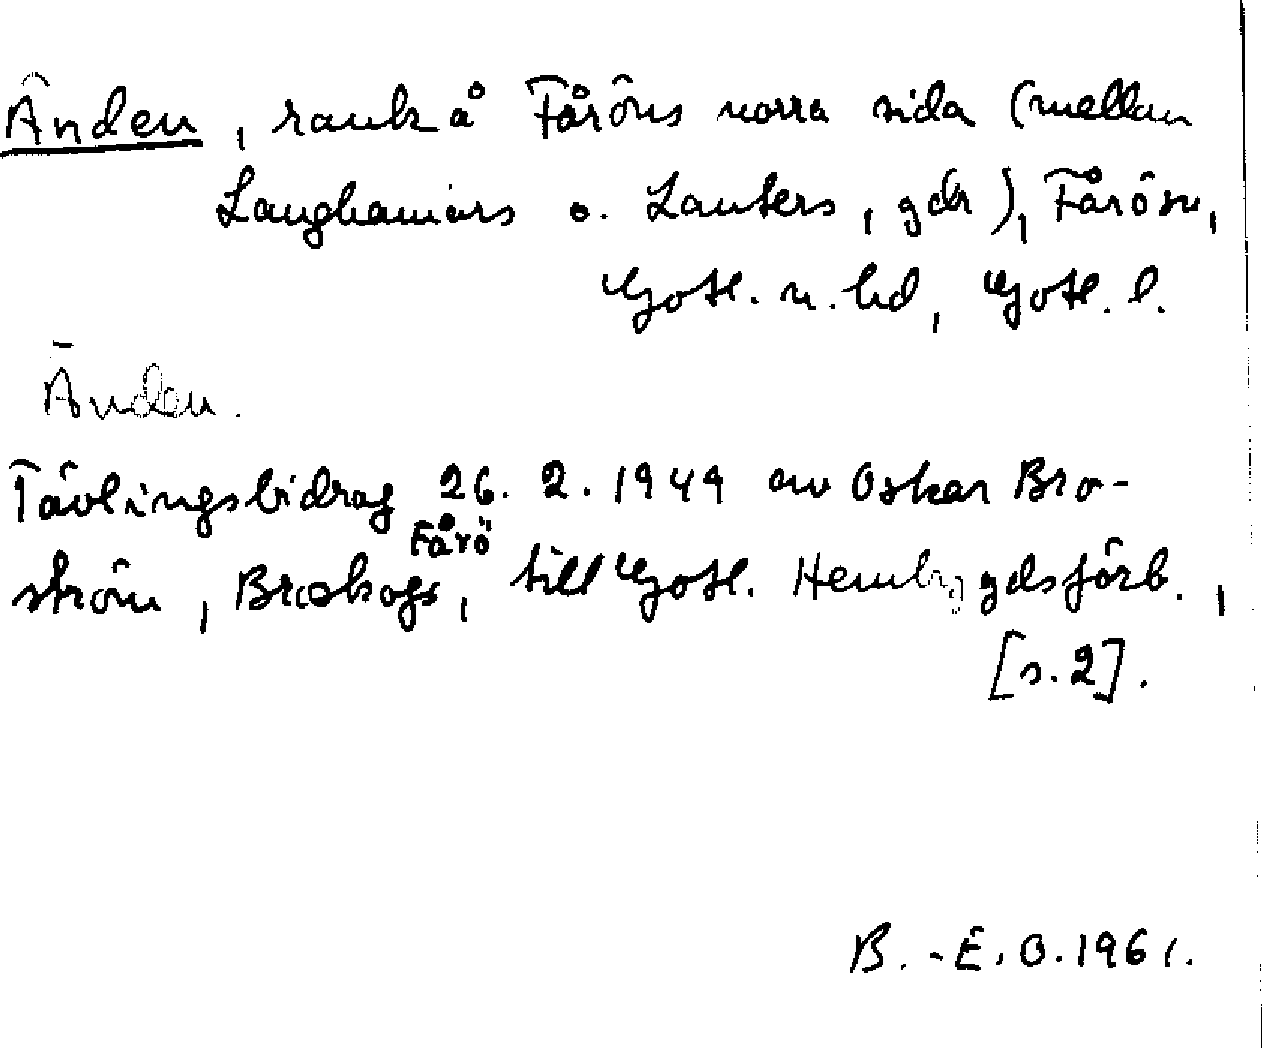 Änden, rauk å Fåröns norra sida (mellan
Langhamars o. Lauters, gdr), Fårö sn,
Gotl. n. hd, Gotl. l.
Änden.
Tävlingsbidrag 26. 2. 1949 av Oskar Bro-
ström, Broskogs, Fårö till Gotl. Hembygdsförb.,
[s. 2].
B.-E. O. 1961.